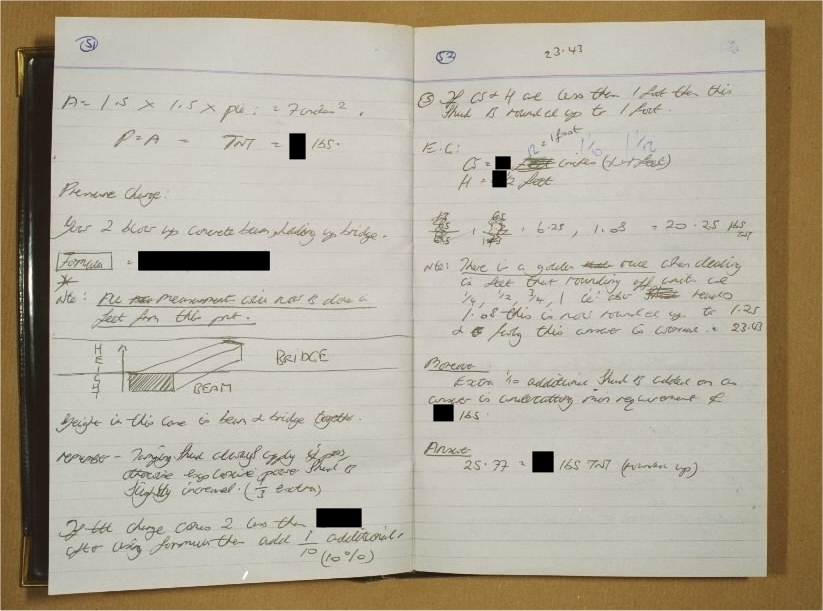 51
A = 1.5 × 1.5 × pie : = 7 inches².
P = A = TNT = lbs.
Pressure charge:
How 2 blow up concrete beam holding up bridge.
Formula =
Note: measurement will now be done in
feet from this part.
HEIGHT
BRIDGE
BEAM
Height in this case is beam & bridge together.
REMEMBER - always apply if
otherwise explosive power should be
slightly increased. (1/3 extra)
If charge comes 2 less than
after using formula then add 1/10 additional.
(10%)
52
23.43
③ If & H are less than 1 foot then this
should be rounded up to 1 foot.
E.G:
12 = 1 foot
inches
H = feet
6.25, 1.08 = 20.25 lbs
TNT
Note: There is a golden rule when dealing
in feet that rounding off units are
1/4, 1/2, 3/4, 1 i.e.
1.08 this is now rounded up to 1.25
this answer is = 23.43
Moreover
Extra 1/10 additional should be added on as
answer is min requirement of
lbs.
Answer
25.77 = lbs TNT (rounded up)